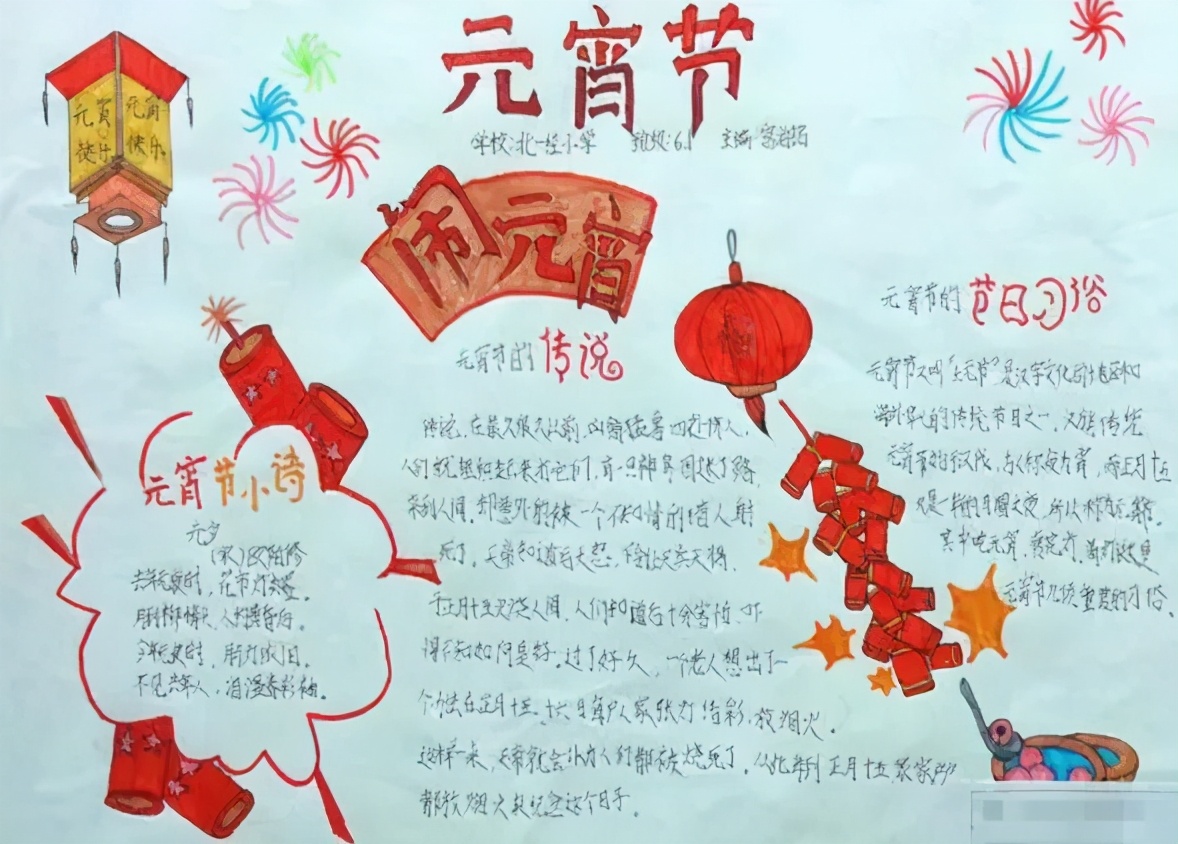 元宵节
学校:北一经小学 班级:6.1 主编
元宵快乐
元宵快乐
闹元宵
元宵节的传说
传说,在很久很久以前,凶禽猛兽四处伤人,
人们就组织起来打它们,有一只神鸟因迷了路
来到人间,却意外的被一个不知情的猎人射
死了,天帝知道后大怒,传让天兵天将
于正月十五火烧人间,人们知道后十分害怕,吓
得不知如何是好。过了好久,一个老人想出了一
个办法在正月十五、十六日每户人家张灯结彩,放烟火。
这样一来,天帝就会以为人们都被烧死了,从此每到正月十五,家家户户
都放烟火来纪念这个日子。
元宵节小诗
元夕
(宋)欧阳修
去年元夜时,花市灯如昼。
月到柳梢头,人约黄昏后。
今年元夜时,月与灯旧。
不见去年人,泪湿春衫袖。
元宵节的节日习俗
元宵节又叫"上元节"是汉字文化圈地区和
的传统节日之一,
正月十五
又是一年的月圆之夜,所以称为元宵。
吃元宵,赏花灯,
元宵节几项重要的习俗。